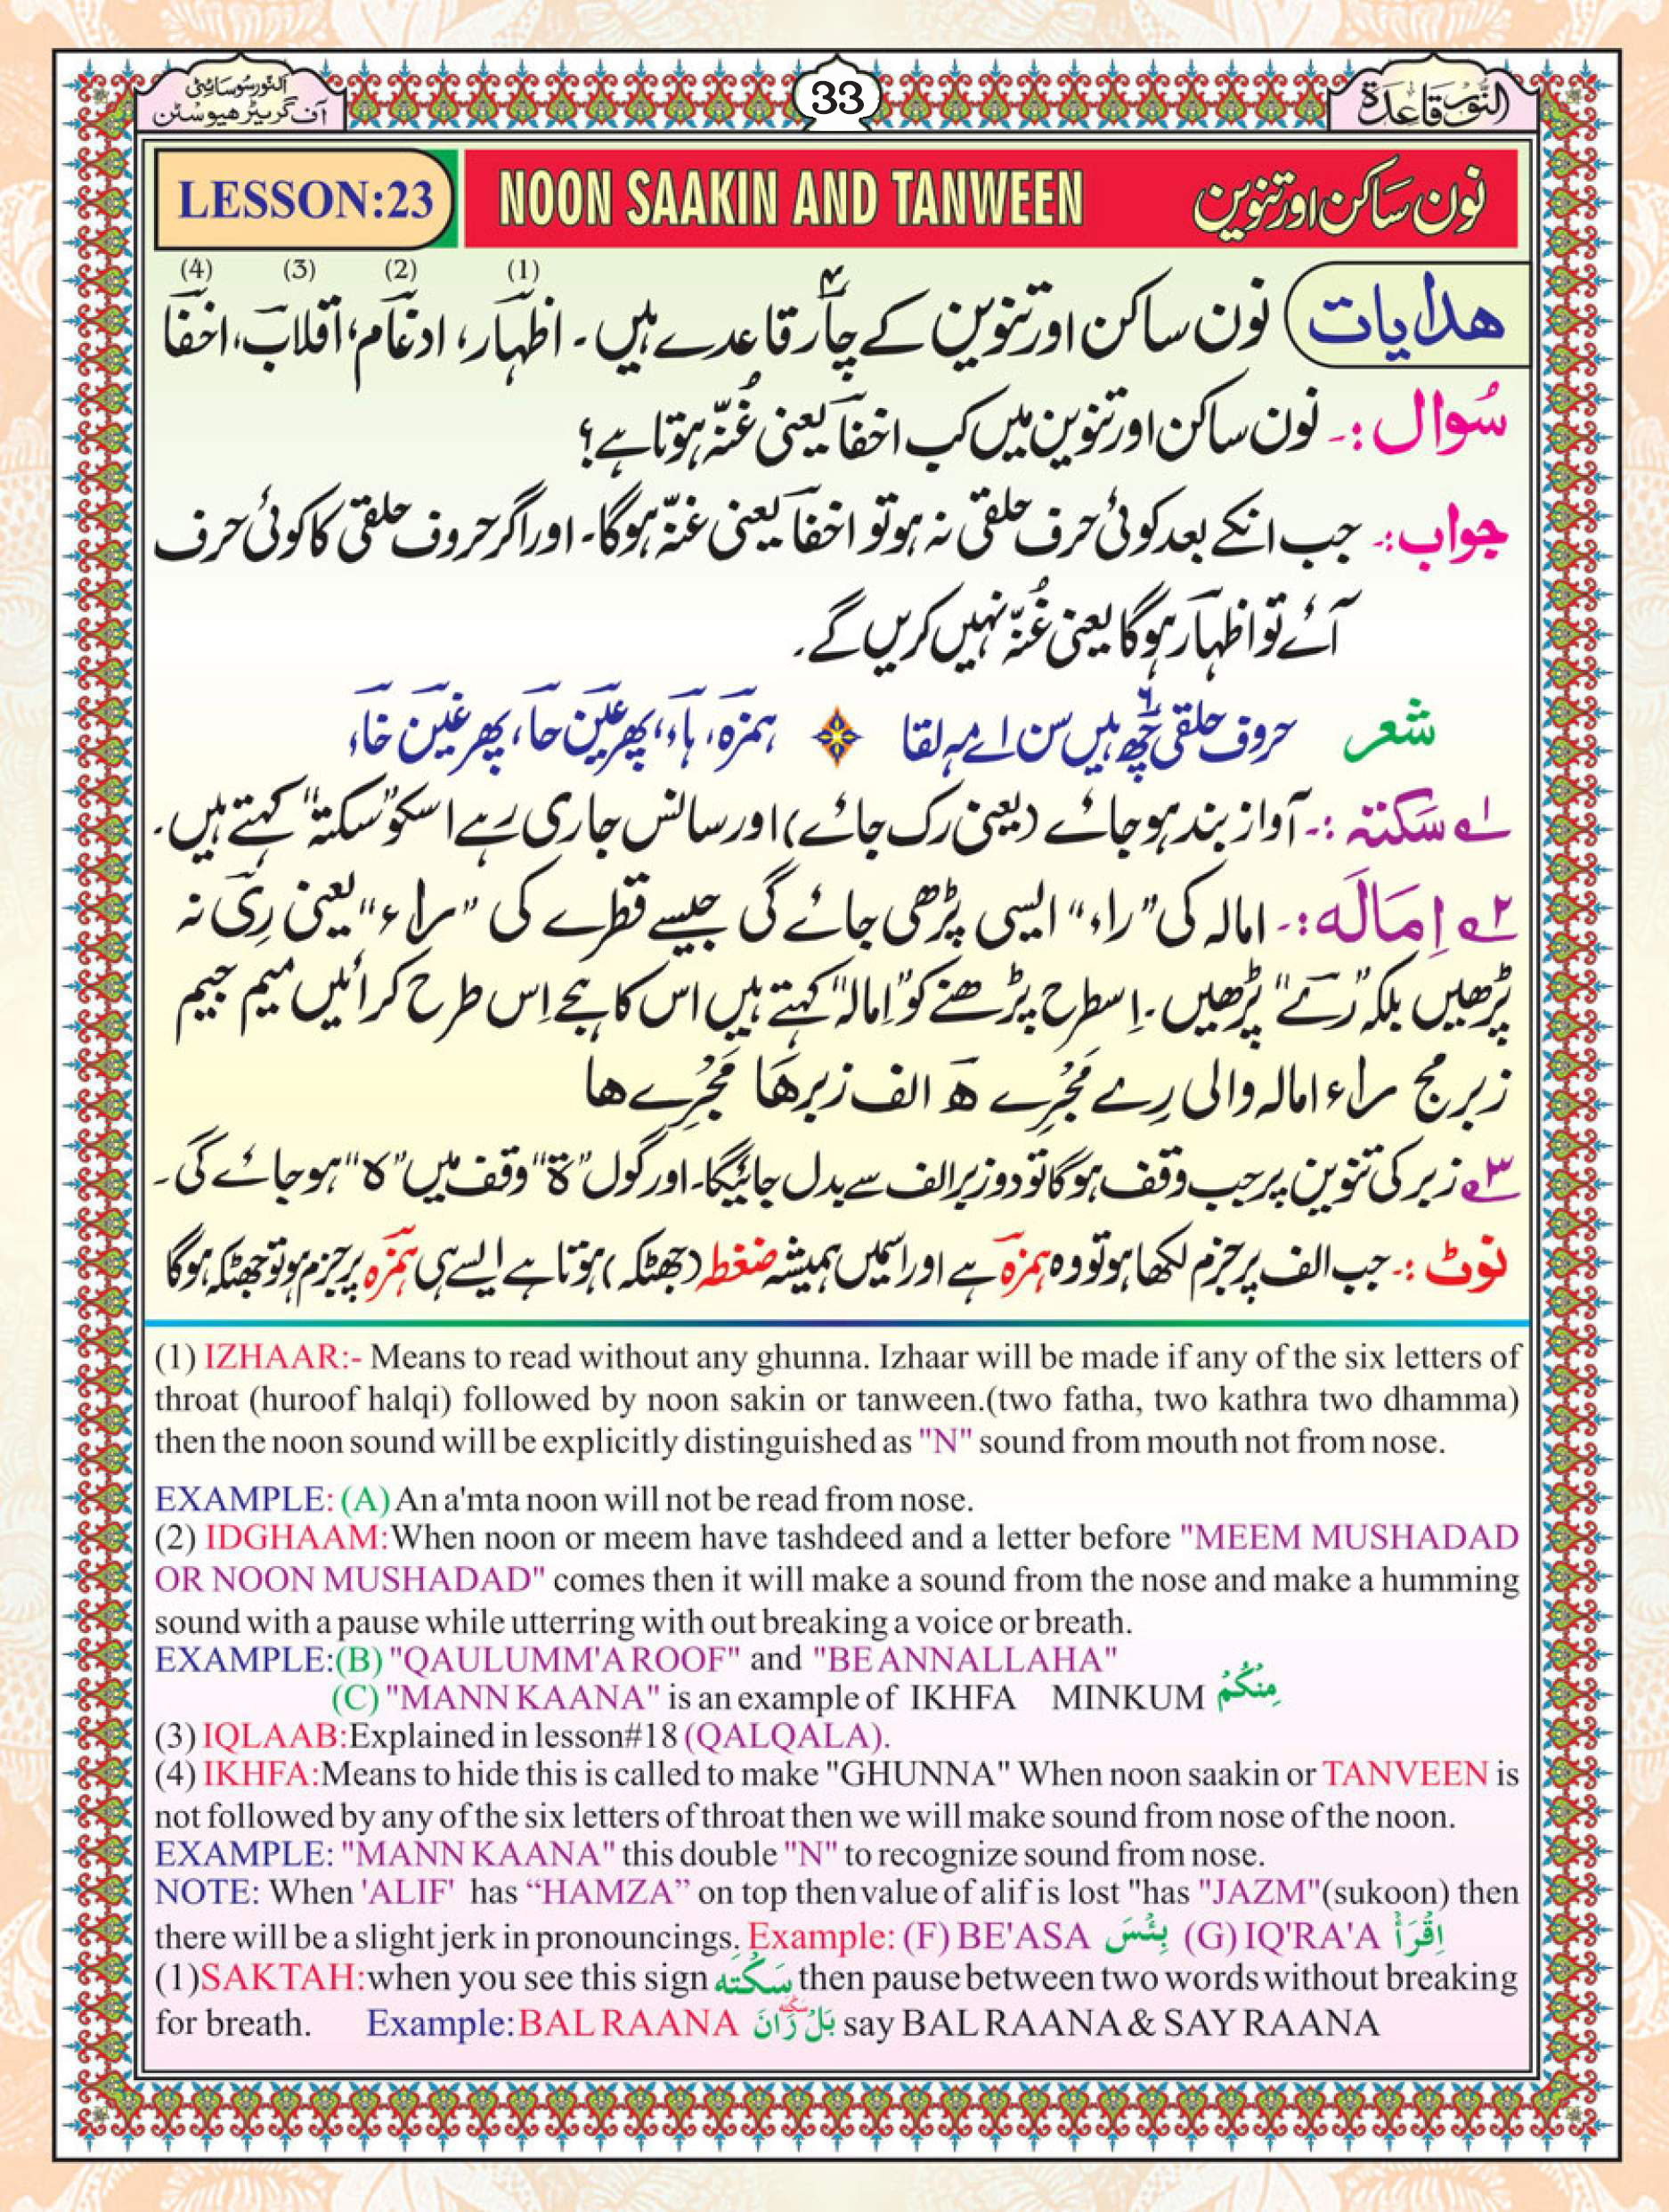 النور سوسائٹی
آف گریٹر هیوسٹن
33
النور قاعدة
LESSON:23
NOON SAAKIN AND TANWEEN
نون ساکن اور تنوین
(4) (3) (2) (1)
ھدایات نون ساکن اور تنوین کے چار۴ قاعدے ہیں ۔ اظہار، ادغام، اقلاب، اخفا
سُوال :۔ نون ساکن اور تنوین میں کب اخفا یعنی غُنّہ ہوتا ہے؟
جواب:۔ جب انکے بعد کوئی حرف حلقی نہ ہو تو اخفا یعنی غنّہ ہوگا۔ اور اگر حروف حلقی کا کوئی حرف
آئے تو اظہار ہوگا یعنی غُنّہ نہیں کریں گے۔
شعر حروف حلقی چھ۶ ہیں سن اے مہ لقا ہمزہ، ہاء، پھر عین حا، پھر غین خاء
۱؎ سَکتہ :۔ آواز بند ہو جائے (یعنی رک جائے) اور سانس جاری رہے اسکو "سکتہ" کہتے ہیں۔
۲؎ اِمَالَہ :۔ امالہ کی "راء" ایسی پڑھی جائے گی جیسے قطرے کی "راء" یعنی رِیْ نہ
پڑھیں بلکہ "رے" پڑھیں۔ اِسطرح پڑھنے کو "اِمالہ" کہتے ہیں اس کا ہجے اِس طرح کرائیں میم جیم
زبر مج راء امالہ والی رِے مَجْرِے ھَ الف زبر ھَا مَجْرِے ھا
۳؎ زبر کی تنوین پر جب وقف ہوگا تو دو زبر الف سے بدل جائیگا۔ اور گول "ة" وقف میں "ہ" ہو جائے گی۔
نوٹ :۔ جب الف پر جزم لکھا ہو تو وہ ہمزہ ہے اور اسمیں ہمیشہ ضغطہ (جھٹکہ) ہوتا ہے ایسے ہی ہمزہ پر جزم ہو تو جھٹکہ ہوگا
(1) IZHAAR:- Means to read without any ghunna. Izhaar will be made if any of the six letters of
throat (huroof halqi) followed by noon sakin or tanween.(two fatha, two kathra two dhamma)
then the noon sound will be explicitly distinguished as "N" sound from mouth not from nose.
EXAMPLE: (A) An a'mta noon will not be read from nose.
(2) IDGHAAM:When noon or meem have tashdeed and a letter before "MEEM MUSHADAD
OR NOON MUSHADAD" comes then it will make a sound from the nose and make a humming
sound with a pause while utterring with out breaking a voice or breath.
EXAMPLE:(B) "QAULUMM'AROOF" and "BEANNALLAHA"
(C) "MANN KAANA" is an example of IKHFA MINKUM مِنْكُمْ
(3) IQLAAB:Explained in lesson#18 (QALQALA).
(4) IKHFA:Means to hide this is called to make "GHUNNA" When noon saakin or TANVEEN is
not followed by any of the six letters of throat then we will make sound from nose of the noon.
EXAMPLE: "MANN KAANA" this double "N" to recognize sound from nose.
NOTE: When 'ALIF' has “HAMZA” on top then value of alif is lost "has "JAZM"(sukoon) then
there will be a slight jerk in pronouncings. Example: (F) BE'ASA بِئْسَ (G) IQ'RA'A اِقْرَأْ
(1)SAKTAH:when you see this sign سَكْتَه then pause between two words without breaking
for breath. Example:BAL RAANA بَلْ سكتة رَانَ say BAL RAANA & SAY RAANA